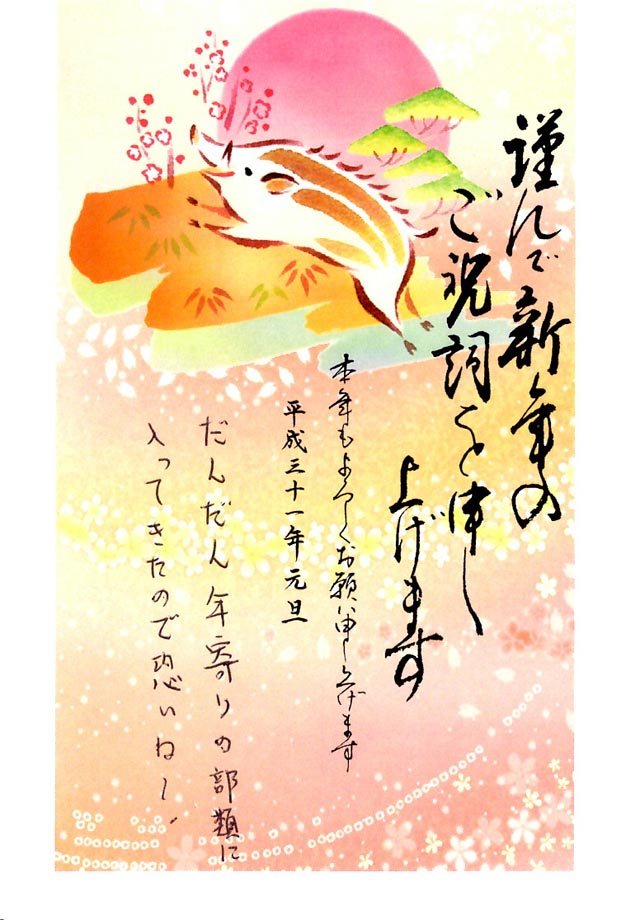 謹んで新年の
ご祝詞を申し
上げます
本年もよろしくお願い申し上げます
平成三十一年元旦
だんだん年寄りの部類に
入ってきたので恐いねー!